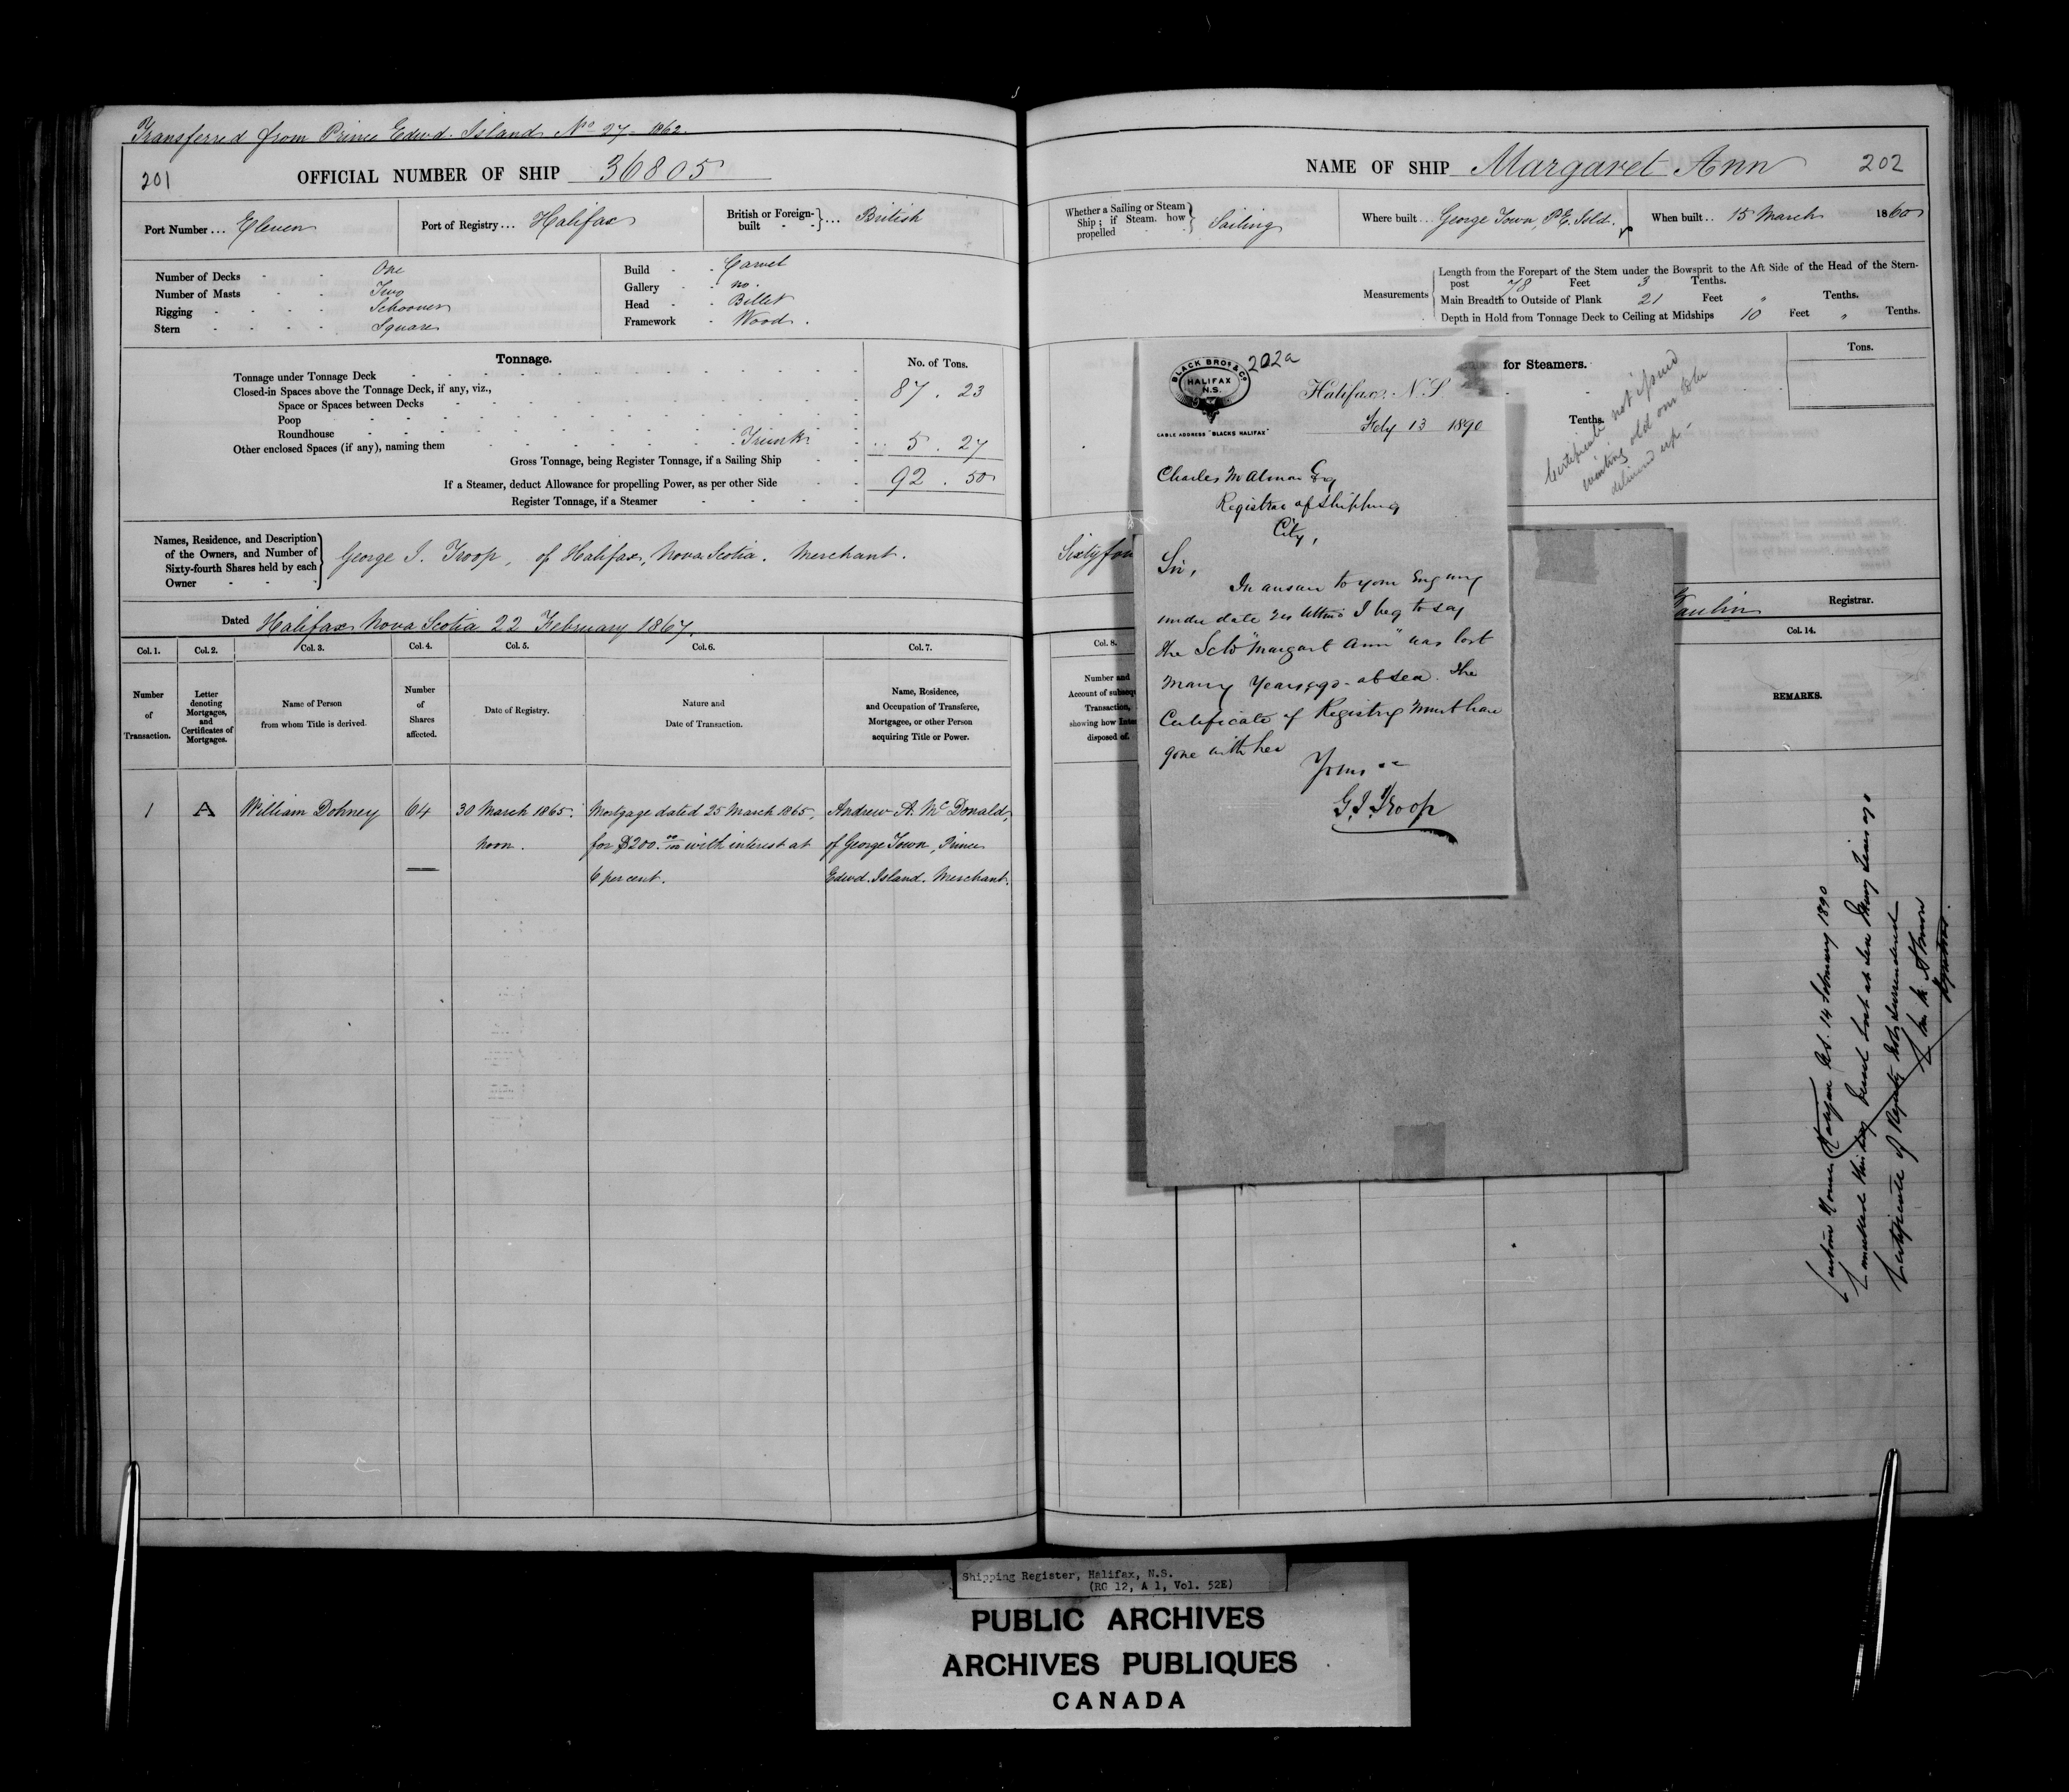 Transferred from Prince Edwd. Island No 27 - 1862.
201
OFFICIAL NUMBER OF SHIP 36805
Port Number ... Eleven
Port of Registry ... Halifax
British or Foreign-built } ... British
Number of Decks - - One
Number of Masts - - Two
Rigging - - - - Schooner
Stern - - - - Square
Build - - Carvel
Gallery - - no.
Head - - Billet
Framework - Wood.
Tonnage.
No. of Tons.
Tonnage under Tonnage Deck
87 . 23
Closed-in Spaces above the Tonnage Deck, if any, viz.,
Space or Spaces between Decks
Poop
Roundhouse
Other enclosed Spaces (if any), naming them Trunk 5 . 27
Gross Tonnage, being Register Tonnage, if a Sailing Ship
92 . 50
If a Steamer, deduct Allowance for propelling Power, as per other Side
Register Tonnage, if a Steamer
Names, Residence, and Description
of the Owners, and Number of
Sixty-fourth Shares held by each
Owner
George I. Troop, of Halifax, Nova Scotia. Merchant.
Dated Halifax Nova Scotia 22 February 1867.
Col. 1. Col. 2. Col. 3. Col. 4. Col. 5. Col. 6. Col. 7.
Number of Transaction.
Letter denoting Mortgages, and Certificates of Mortgages.
Name of Person from whom Title is derived.
Number of Shares affected.
Date of Registry.
Nature and Date of Transaction.
Name, Residence, and Occupation of Transferee, Mortgagee, or other Person acquiring Title or Power.
1 A William Dohney 64 30 March 1865. Mortgage dated 25 March 1865, Andrew A. McDonald,
noon. for $200. 00/100 with interest at of George Town, Prince
6 per cent. Edwd. Island. Merchant.
NAME OF SHIP Margaret Ann
202
Whether a Sailing or Steam
Ship; if Steam. how
propelled
Sailing
Where built .. George Town, P.E. Isld.
When built .. 15 March 1860
Measurements
Length from the Forepart of the Stem under the Bowsprit to the Aft Side of the Head of the Stern-
post 78 Feet 3 Tenths.
Main Breadth to Outside of Plank 21 Feet " Tenths.
Depth in Hold from Tonnage Deck to Ceiling at Midships 10 Feet " Tenths.
for Steamers.
Tons.
Tenths.
Certificate not issued
waiting old one to be
delivered up -
Sixty four
Paulin Registrar.
Col. 8.
Number and
Account of
Transaction,
showing how
disposed of.
Col. 14.
REMARKS.
202a
BLACK BROS & CO
HALIFAX
N.S.
CABLE ADDRESS "BLACKS HALIFAX"
Halifax, N.S.
Feby 13 1890
Charles M Almon Esq
Registrar of Shipping
City,
Sir,
In answer to your Enquiry
under date Ultmo I beg to say
the Schr "Margart Ann" was lost
many Years ago - at sea. The
Certificate of Registry must have
gone with her
Yours
G. I. Troop
Custom House Halifax N.S. 14 February 1890
Cancelled this day Vessel Lost at Sea Many Years ago
Certificate of Registry not surrendered
Almon
Registrar.
Shipping Register, Halifax, N.S.
(RG 12, A 1, Vol. 52E)
PUBLIC ARCHIVES
ARCHIVES PUBLIQUES
CANADA